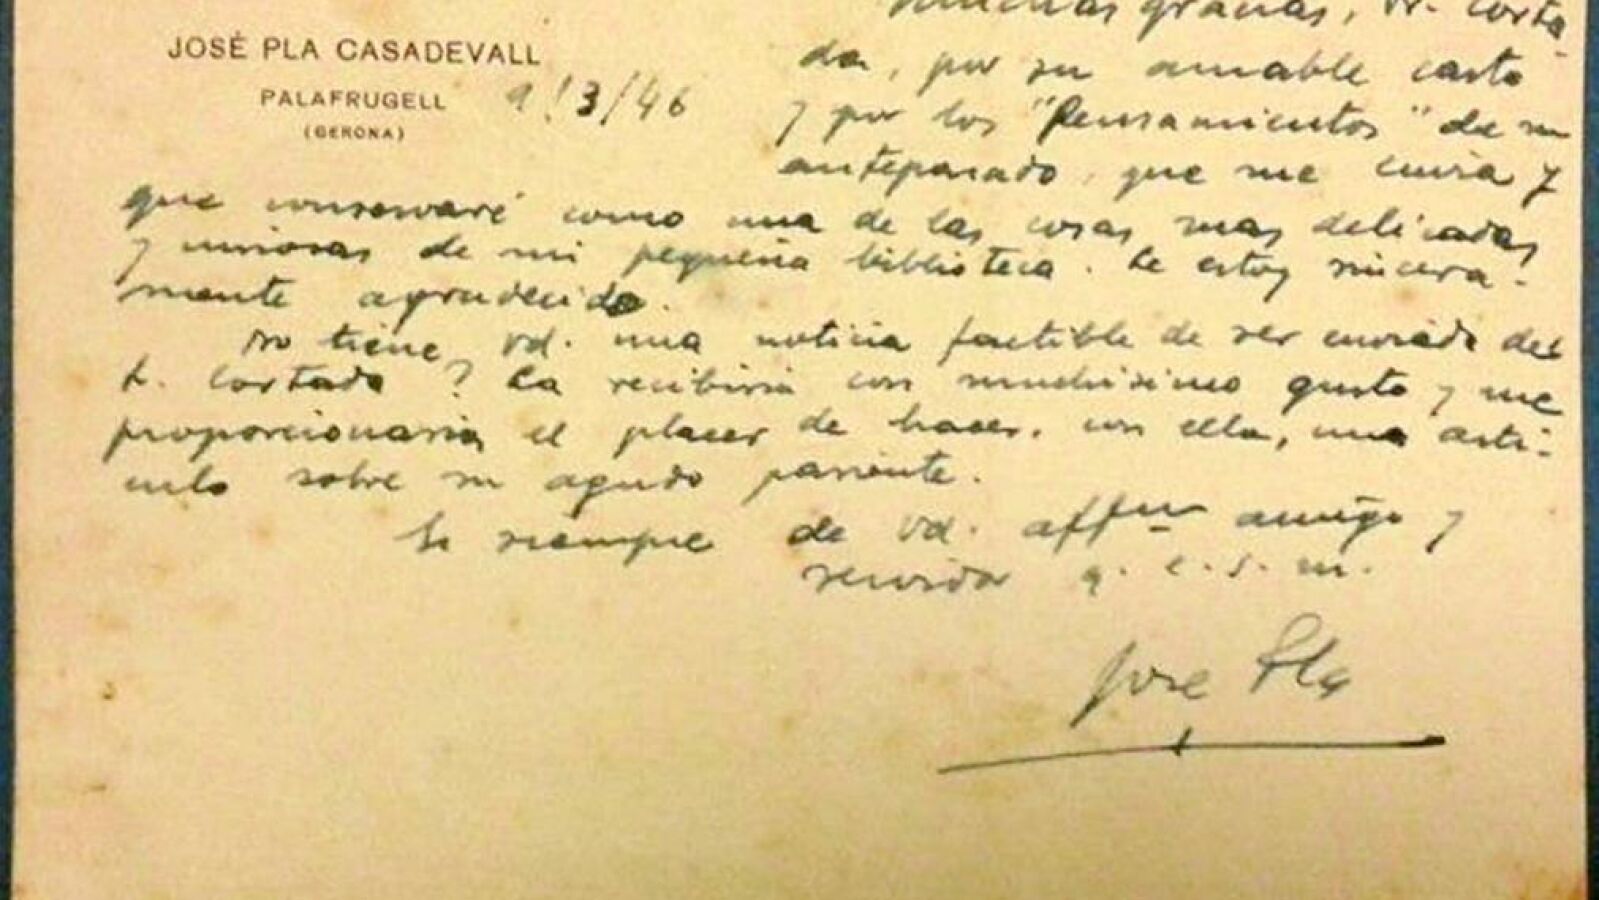 JOSÉ PLA CASADEVALL
PALAFRUGELL
(GERONA)
9/3/46
Muchas gracias, Sr. Corta-
da, por su amable carta
y por los "Pensamientos" de su
antepasado, que me envia y
que conservaré como una de las cosas mas delicadas
y curiosas de mi pequeña biblioteca. Le estoy sincera-
mente agradecido.
No tiene Vd. una noticia factible de ser enviada del
Sr. Cortada? La recibiria con muchisimo gusto y me
proporcionaria el placer de hacer, con ella, un arti-
culo sobre su agudo pariente.
siempre de Vd. affmo amigo y
servidor q. e. s. m.
Jose Pla